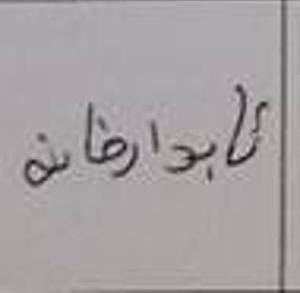 آبدارخانه